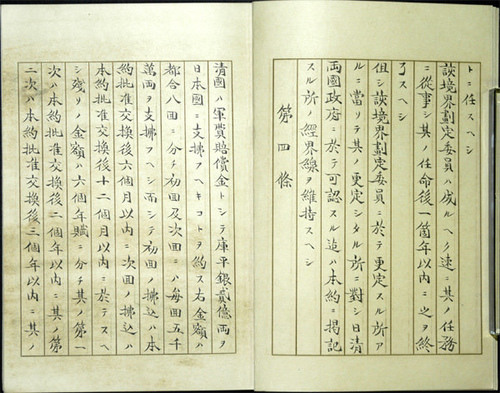 トニ任スヘシ
該境界劃定委員ハ成ルヘク速ニ其ノ任務
ニ從事シ其ノ任命後一箇年以內ニ之ヲ終
了スヘシ
但シ該境界劃定委員ニ於テ更定スル所ア
ルニ當リテ其ノ更定シタル所ニ對シ日淸
兩國政府ニ於テ可認スル迄ハ本約ニ揭記
スル所ノ經界線ヲ維持スヘシ
第四條
淸國ハ軍費賠償金トシテ庫平銀貳億兩ヲ
日本國ニ支拂フヘキコトヲ約ス右金額ハ
都合八囘ニ分チ初囘及次囘ニハ每囘五千
萬兩ヲ支拂フヘシ而シテ初囘ノ拂込ハ本
約批准交換後六個月以內ニ次囘ノ拂込ハ
本約批准交換後十二個月以內ニ於テスヘ
シ殘リノ金額ハ六個年賦ニ分チ其ノ第一
次ハ本約批准交換後二個年以內ニ其ノ第
二次ハ本約批准交換後三個年以內ニ其ノ